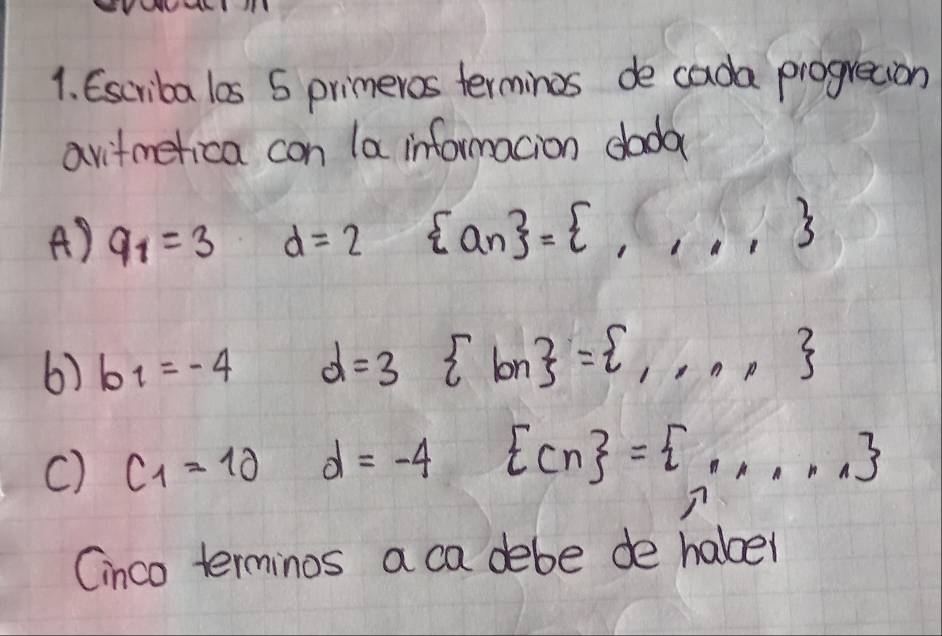 1. Escriba los 5 primeros terminos de cada progrecion
aritmetica con la informacion dada
A) a1 = 3 d = 2 {an} = { , , , , }
b) b1 = -4 d = 3 { bn} = { , , , , }
C) C1 = 10 d = -4 {cn} = { , , , , , }
Cinco terminos a ca debe de haber